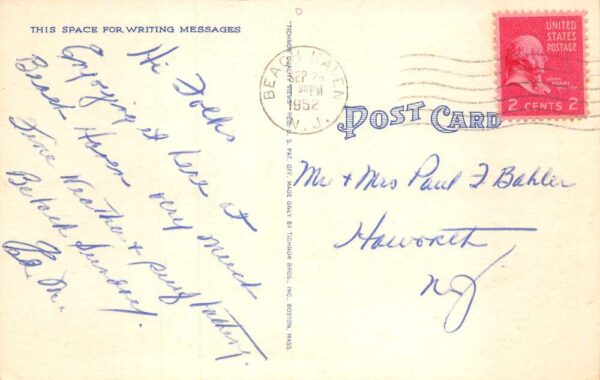 THIS SPACE FOR WRITING MESSAGES
Hi Folks
Enjoying it here at
Beach Haven very much
Fine Weather &
Back Sunday.
Ed M.
TICHNOR QUALITY VIEWS, REG. U. S. PAT. OFF. MADE ONLY BY TICHNOR BROS., INC., BOSTON, MASS.
BEACH HAVEN
SEP 24
PM
1952
N. J.
POST CARD
UNITED
STATES
POSTAGE
JOHN ADAMS
2 CENTS 2
Mr + Mrs Paul F Bahler
Haworth
N J